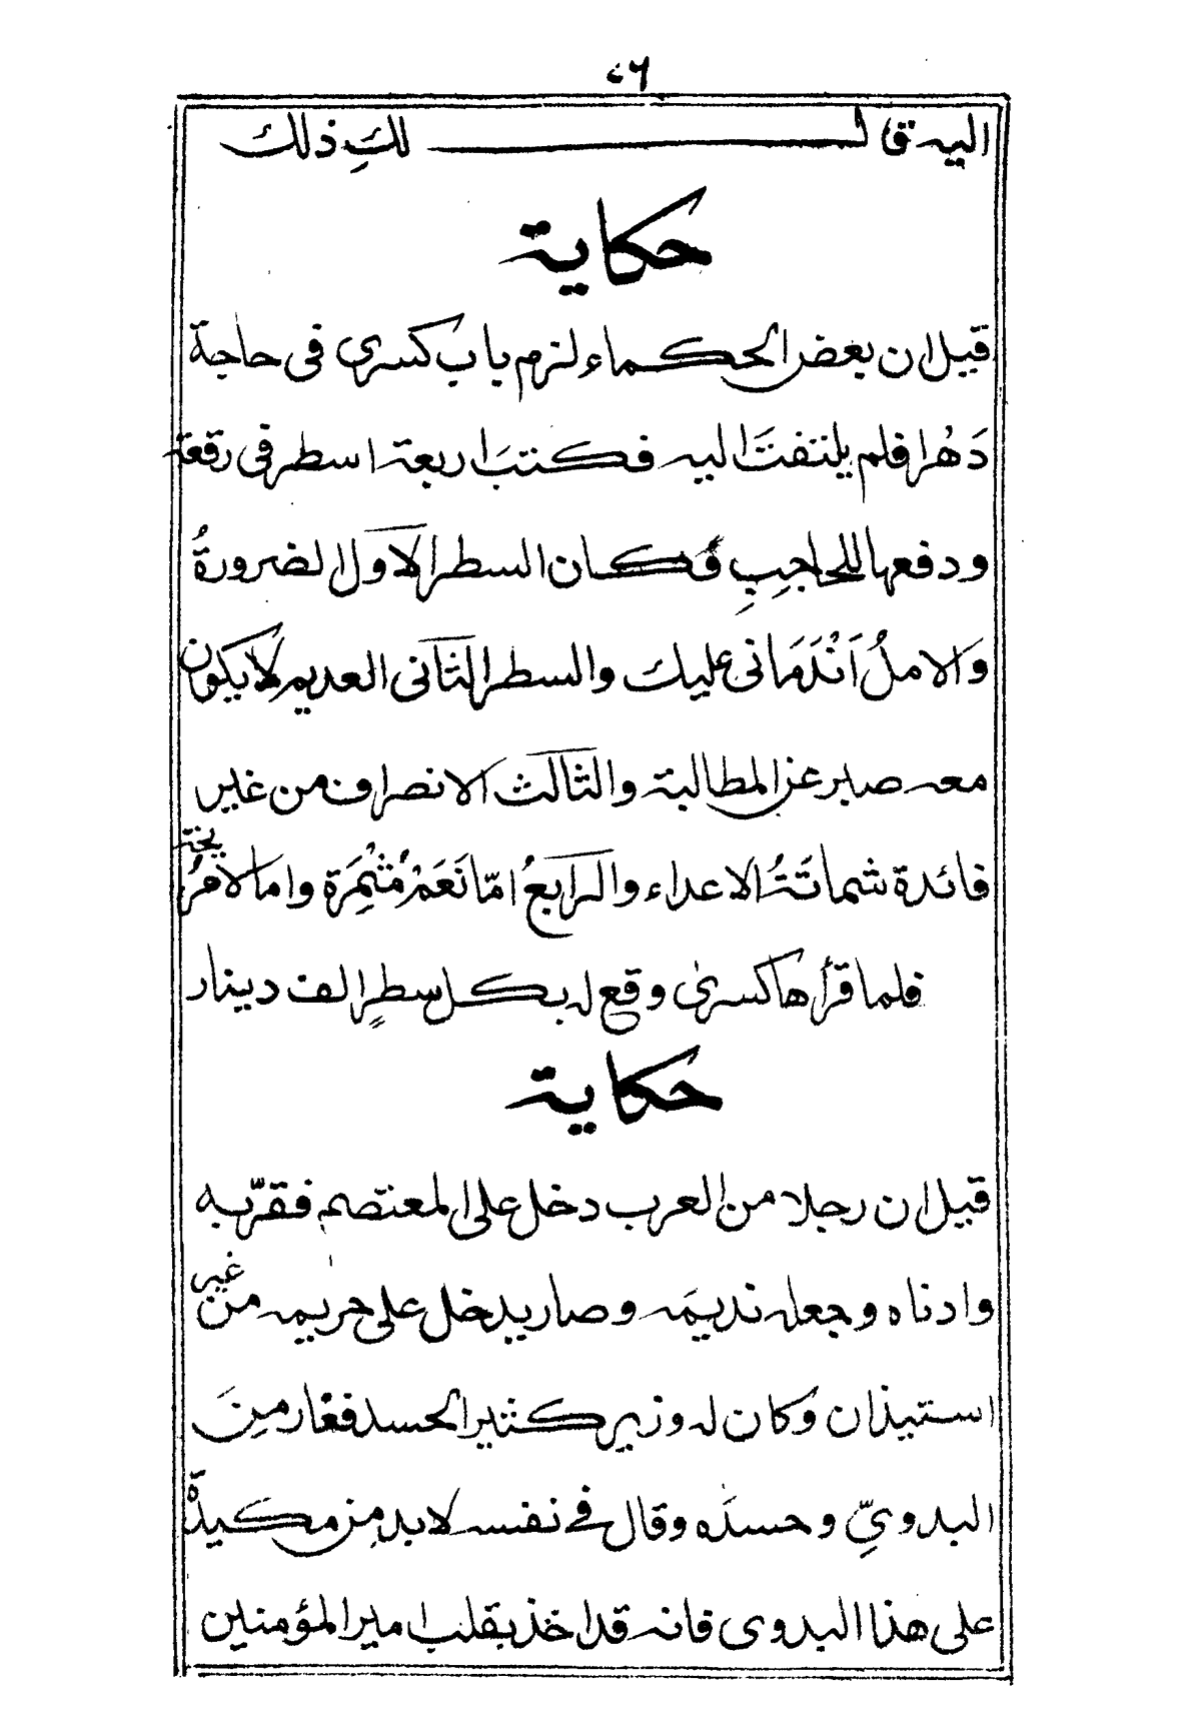 ٤٦
اليه قال لكِ ذلك
حكاية
قيل ان بعض الحكماء لزم باب كسرى فى حاجة
دَهْرا فلم يلتفتَ اليه فكتبَ اربعة اسطر فى رقعة
ودفعها للحاجِبِ فكان السطر الاول الضرورةُ
والاملُ اَنْدَمَانى عليك والسطر الثانى العديم لا يكون
معه صبر عن المطالبة والثالث الانصراف من غير
فائدة شماتَتُ الاعداء والرابعُ امّا نَعَمْ مُثْمِرَة واما لا مُرّ
يحتة
فلما قرأها كسرىٰ وقع له بكل سطرٍ الف دينار
حكاية
قيل ان رجلا من العرب دخل على المعتصم فقرّبه
وادناه وجعله نديمَه وصار يدخل على حريمه من غير
استيذان وكان له وزير كثير الحسد فغار مِنَ
البدويِّ وحسدَه وقال في نفسه لابد مِن مكيدةْ
على هذا البدوى فانه قد اخذ بقلب امير المؤمنين